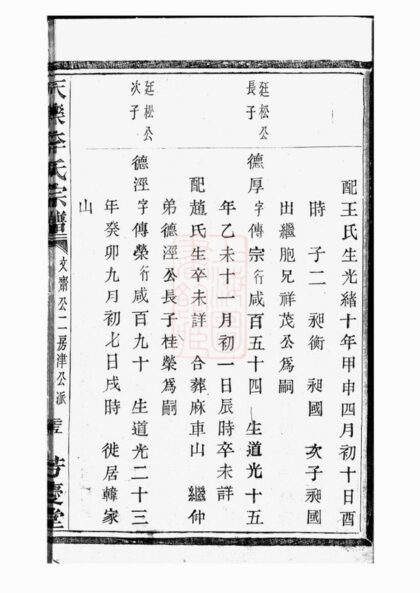 配王氏生光緒十年甲申四月初十日酉
時 子二 昶衡 昶國 次子昶國
出繼胞兄祥茂公為嗣
廷松公
長子
德厚字傳宗行咸百五十四 生道光十五
年乙未十一月初一日辰時卒未詳
配趙氏生卒未詳 合葬麻車山 繼仲
弟德涇公長子桂榮為嗣
廷松公
次子
德涇字傳榮行咸百九十 生道光二十三
年癸卯九月初七日戌時 徙居韓家
山
李氏宗譜
文齋公二房津公派